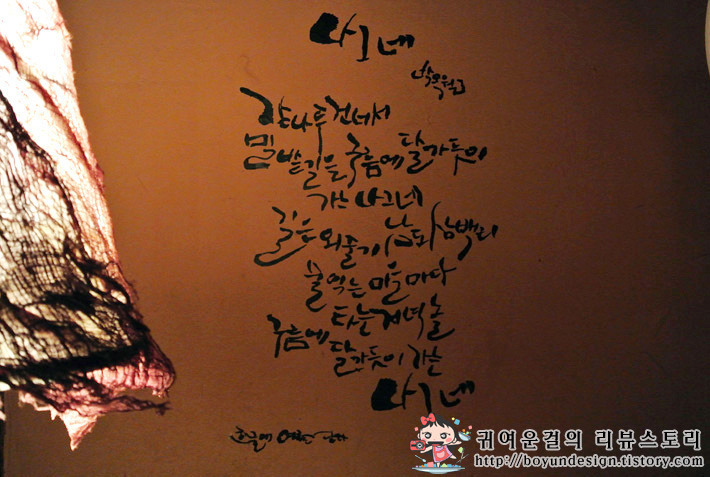 나그네
박목월
강나루 건너서
밀밭길을 구름에 달가듯이
가는 나그네
길은 외줄기 남도 삼백리
술 익는 마을마다
타는 저녁놀
구름에 달가듯이 가는
나그네
귀여운걸의 리뷰스토리
http://boyundesign.tistory.com